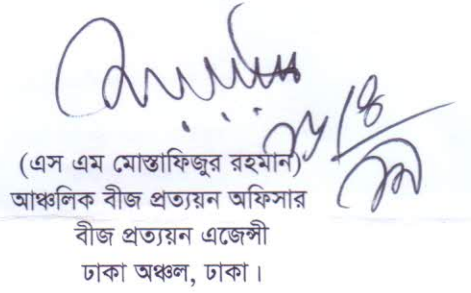 (এস এম মোস্তাফিজুর রহমান)
আঞ্চলিক বীজ প্রত্যয়ন অফিসার
বীজ প্রত্যয়ন এজেন্সী
ঢাকা অঞ্চল, ঢাকা।